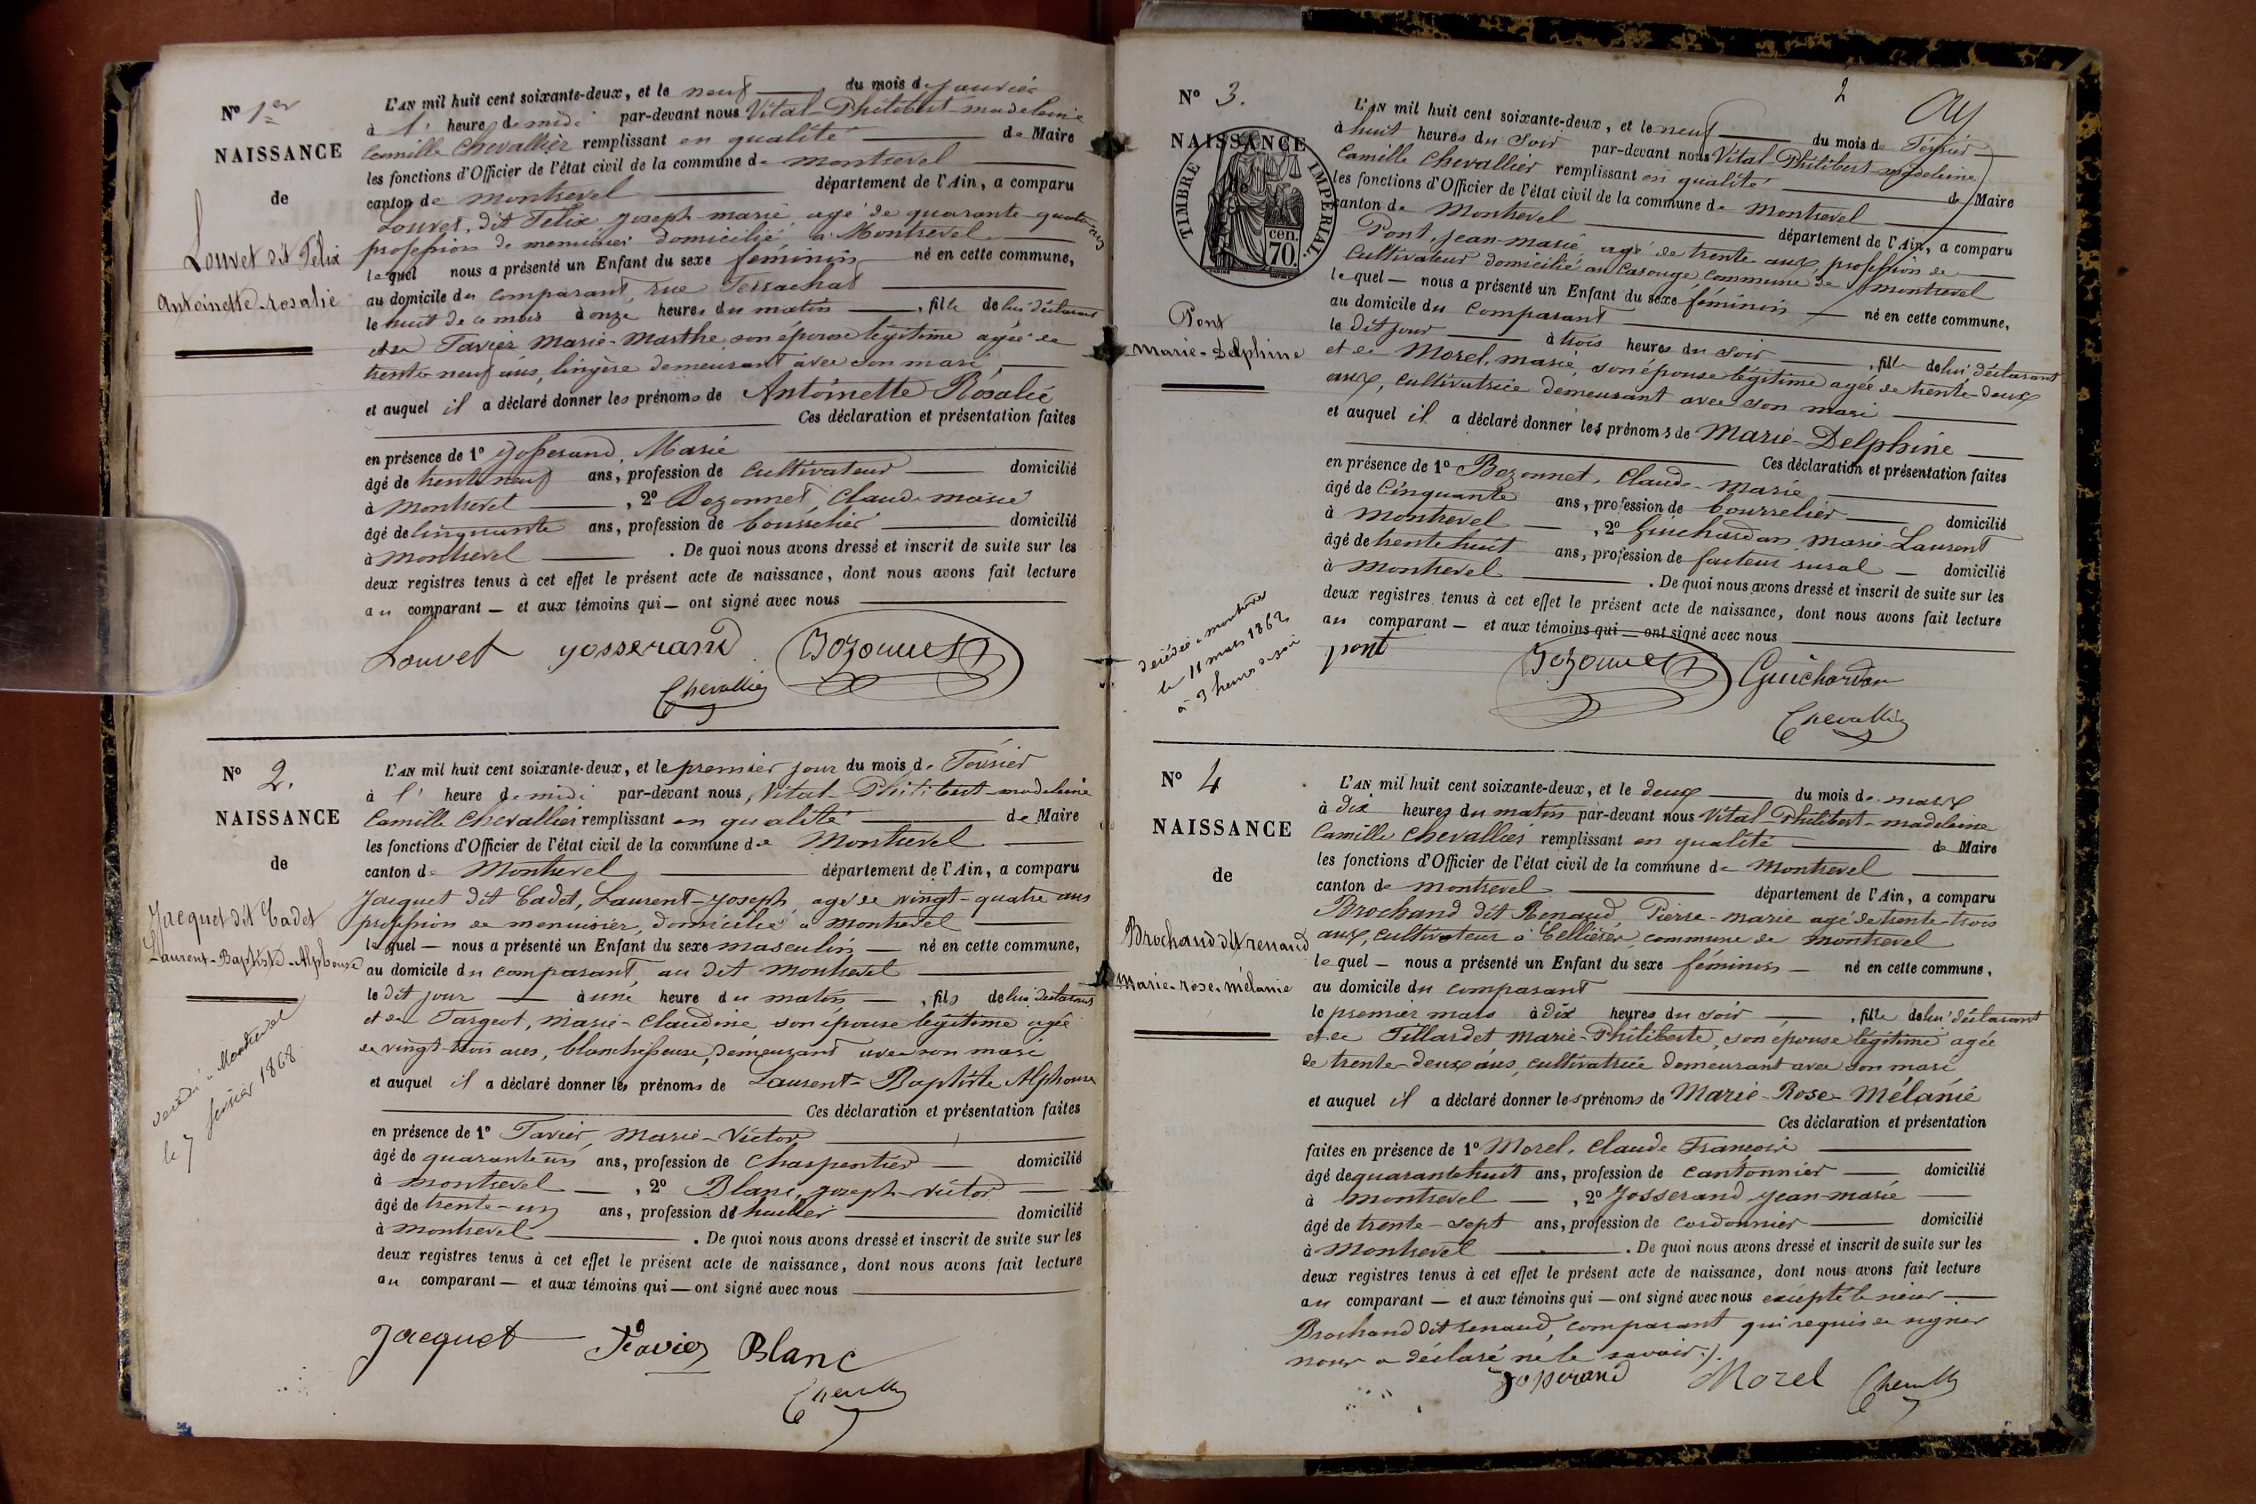 Nº 1er
NAISSANCE
de
Louvet dit Félix
Antoinette-rosalie
L'AN mil huit cent soixante-deux, et le neuf du mois de janvier
à 1' heure de midi par-devant nous Vital-Philibert-madeleine
Camille Chevallier remplissant en qualité de Maire
les fonctions d'Officier de l'état civil de la commune de montrevel
canton de montrevel département de l'Ain, a comparu
Louvet, dit Félix joseph-marie agé de quarante-quatre ans
profession de menuisier domicilié à Montrevel
lequel nous a présenté un Enfant du sexe féminin né en cette commune,
au domicile du comparant, rue
le huit de ce mois à onze heures du matin, fille de lui déclarant
et de Tavier Marie-Marthe, son épouse légitime agée de
trente neuf ans, lingère demeurant avec son mari
et auquel il a déclaré donner les prénoms de Antoinette Rosalie
Ces déclaration et présentation faites
en présence de 1º josserand, Marie
âgé de trente neuf ans, profession de cultivateur domicilié
à montrevel, 2º Bozonnet, Claude-marie
âgé de cinquante ans, profession de bourrelier domicilié
à montrevel. De quoi nous avons dressé et inscrit de suite sur les
deux registres tenus à cet effet le présent acte de naissance, dont nous avons fait lecture
au comparant — et aux témoins qui — ont signé avec nous
Louvet josserand Bozonnet
Chevallier
Nº 2.
NAISSANCE
de
Jacquet dit Cadet
Laurent-Baptiste-Alphonse
décédé à Montrevel
le 7 février 1868
L'AN mil huit cent soixante-deux, et le premier jour du mois de Février
à l' heure de midi par-devant nous, Vital-Philibert-madeleine
Camille Chevallier remplissant en qualité de Maire
les fonctions d'Officier de l'état civil de la commune de Montrevel
canton de Montrevel département de l'Ain, a comparu
Jacquet dit Cadet, Laurent-joseph, agé de vingt-quatre ans
profession de menuisier, domicilié à montrevel
lequel — nous a présenté un Enfant du sexe masculin — né en cette commune,
au domicile du comparant, au dit montrevel
le dit jour — à une heure du matin —, fils de lui déclarant
et de Targeot, marie-Claudine son épouse légitime agée
de vingt-trois ans, blanchisseuse, demeurant avec son mari
et auquel il a déclaré donner les prénoms de Laurent-Baptiste Alphonse
Ces déclaration et présentation faites
en présence de 1º Tavier, marie-Victor
âgé de quarante un ans, profession de charpentier — domicilié
à montrevel —, 2º Blanc, joseph-victor —
âgé de trente-un ans, profession de domicilié
à montrevel. De quoi nous avons dressé et inscrit de suite sur les
deux registres tenus à cet effet le présent acte de naissance, dont nous avons fait lecture
au comparant — et aux témoins qui — ont signé avec nous
Jacquet Tavier Blanc
Chevallier
2
Nº 3.
NAISSANCE
TIMBRE IMPÉRIAL.
70 cen.
Pont
marie-Delphine
décédée à montrevel
le 11 mars 1862
à 3 heures du soir
L'AN mil huit cent soixante-deux, et le neuf du mois de Février
à huit heures du Soir par-devant nous Vital-Philibert-madeleine
Camille Chevallier remplissant en qualité de Maire
les fonctions d'Officier de l'état civil de la commune de montrevel
canton de Montrevel département de l'Ain, a comparu
Pont, jean-marie agé de trente ans, profession de
cultivateur domicilié au Carouge, commune de montrevel
lequel — nous a présenté un Enfant du sexe féminin — né en cette commune,
au domicile du comparant
le dit jour à trois heures du soir, fille de lui déclarant
et de Morel, marie, son épouse légitime agée de trente-deux
ans, cultivatrice demeurant avec son mari
et auquel il a déclaré donner les prénoms de Marie-Delphine
Ces déclaration et présentation faites
en présence de 1º Bozonnet, Claude-Marie
âgé de cinquante ans, profession de bourrelier domicilié
à montrevel —, 2º Guichardan, marie-Laurent
âgé de trente huit ans, profession de facteur rural — domicilié
à montrevel. De quoi nous avons dressé et inscrit de suite sur les
deux registres tenus à cet effet le présent acte de naissance, dont nous avons fait lecture
au comparant — et aux témoins qui — ont signé avec nous
pont Bozonnet Guichardan
Chevallier
Nº 4
NAISSANCE
de
Brochand dit renaud
marie-rose-mélanie
L'AN mil huit cent soixante-deux, et le deux du mois de mars
à dix heures du matin par-devant nous Vital Philibert-madeleine
Camille Chevallier remplissant en qualité de Maire
les fonctions d'Officier de l'état civil de la commune de Montrevel
canton de montrevel département de l'Ain, a comparu
Brochand dit Renaud Pierre-marie agé de trente-trois
ans, cultivateur à commune de montrevel
lequel — nous a présenté un Enfant du sexe féminin — né en cette commune,
au domicile du comparant
le premier mars à dix heures du soir —, fille de lui déclarant
et de Tillardet Marie-Philiberte, son épouse légitime agée
de trente-deux ans, cultivatrice demeurant avec son mari
et auquel il a déclaré donner les prénoms de Marie-Rose-Mélanie
Ces déclaration et présentation
faites en présence de 1º Morel, Claude François
âgé de quarante huit ans, profession de cantonnier domicilié
à montrevel —, 2º Josserand jean-marie
âgé de trente-sept ans, profession de cordonnier domicilié
à Montrevel. De quoi nous avons dressé et inscrit de suite sur les
deux registres tenus à cet effet le présent acte de naissance, dont nous avons fait lecture
au comparant — et aux témoins qui — ont signé avec nous excepté le sieur
Brochand dit renaud, comparant qui requis de signer
nous a déclaré ne le savoir./.
josserand Morel Chevallier